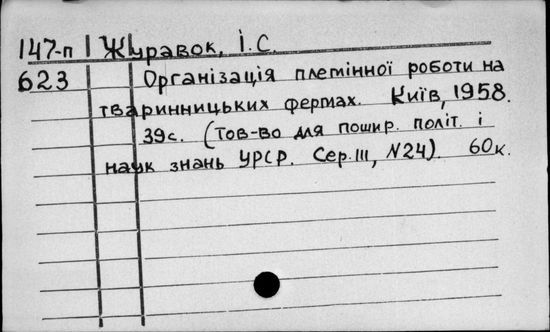 147-п Журавок, І.С.
623 Організація племінної роботи на
тваринницьких фермах. Київ, 1958.
39с. (Тов-во для пошир. політ. і
наук знань УРСР. Сер. III, N24). 60к.